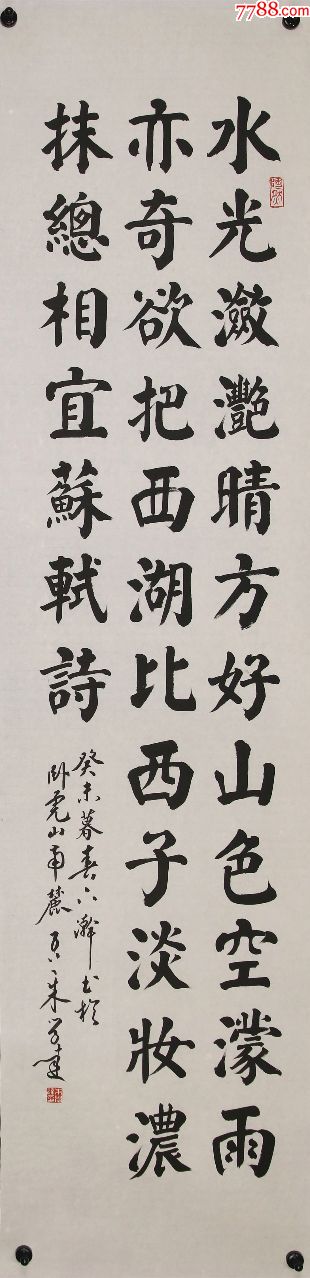 7788.com
水光瀲灩晴方好山色空濛雨
亦奇欲把西湖比西子淡妝濃
抹總相宜蘇軾詩
癸未暮春下澣書於
臥虎山南麓